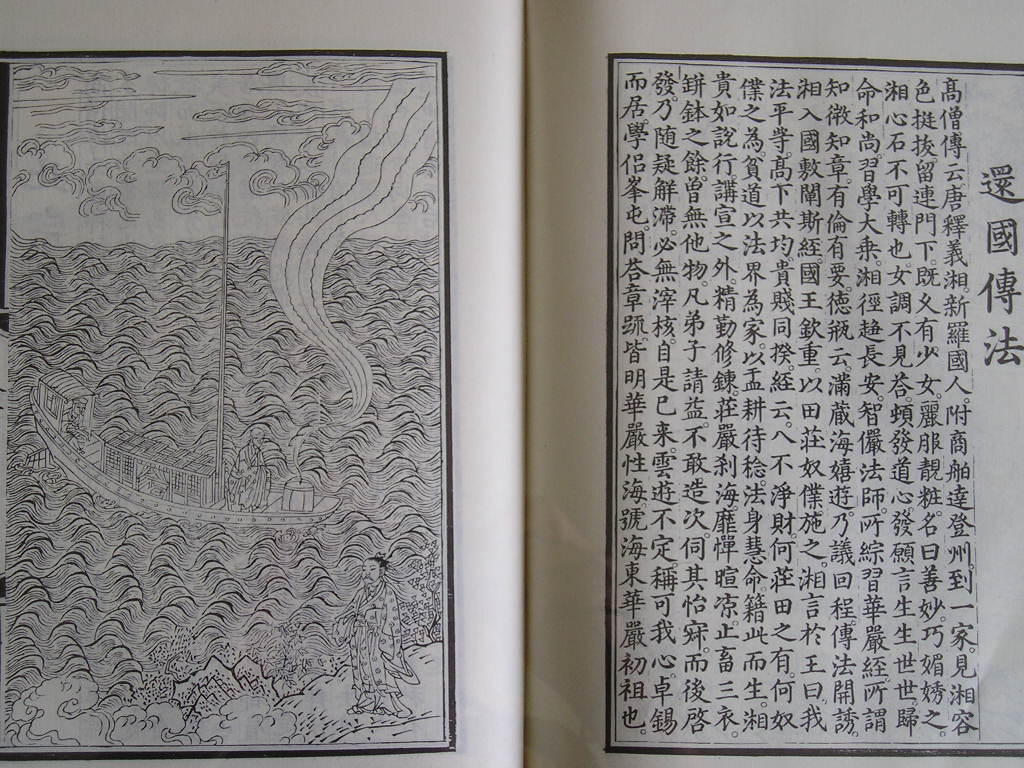 還國傳法
高僧傳云唐釋義湘新羅國人附商舶達登州到一家見湘容
色挺拔留連門下既久有少女麗服靚粧名曰善妙巧媚誘之
湘心石不可轉也女調不見荅頓發道心發願言生生世世歸
命和尚習學大乘湘徑趍長安智儼法師所綜習華嚴經所謂
知微知章有倫有要德瓶云滿藏海嬉遊乃議回程傳法開誘
湘入國敷闡斯經國王欽重以田莊奴僕施之湘言於王曰我
法平等高下共均貴賤同揆經云八不淨財何莊田之有何奴
僕之為貧道以法界為家以盂耕待稔法身慧命籍此而生湘
貴如說行講宣之外精勤修鍊莊嚴剎海靡憚暄凉止畜三衣
缾鉢之餘曾無他物凡弟子請益不敢造次伺其怡寂而後啓
發乃隨疑解滯必無滓核自是已來雲遊不定稱可我心卓錫
而居學侶峯屯問荅章疏皆明華嚴性海號海東華嚴初祖也